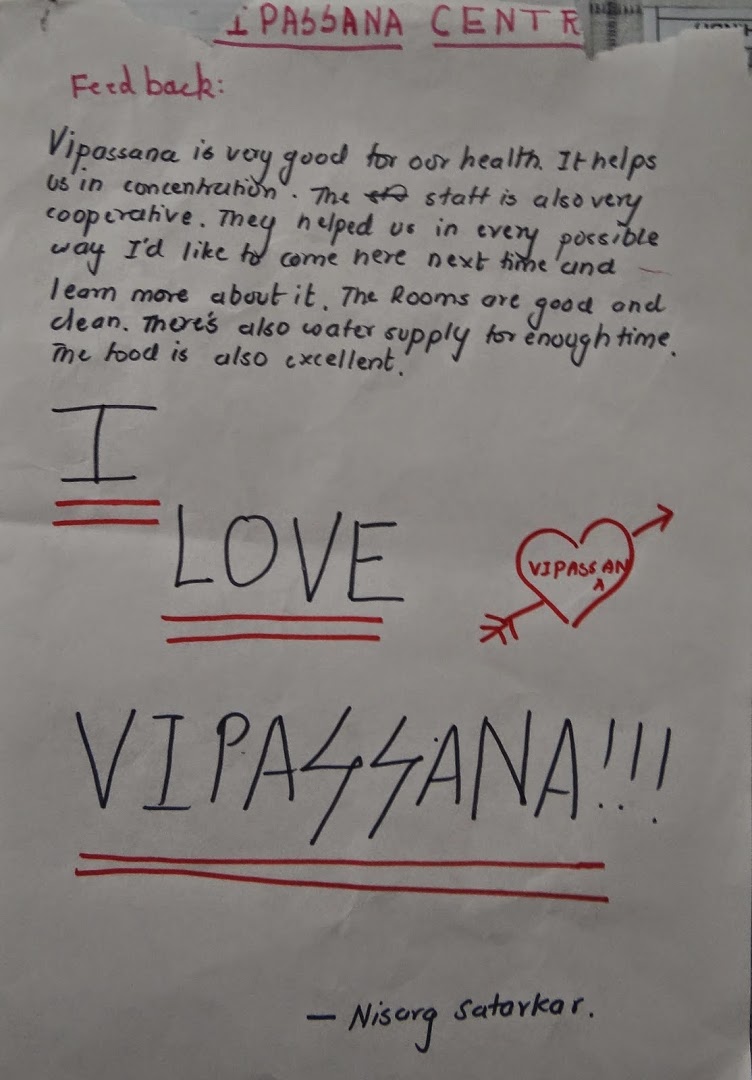 IPASSANA CENTR
Feedback:
Vipassana is very good for our health. It helps
us in concentration. The staff is also very
cooperative. They helped us in every possible
way I'd like to come here next time and
learn more about it. The Rooms are good and
clean. There's also water supply for enough time.
The food is also excellent.
I
LOVE
VIPASSANA
VIPASSANA!!!
— Nisarg Satarkar.